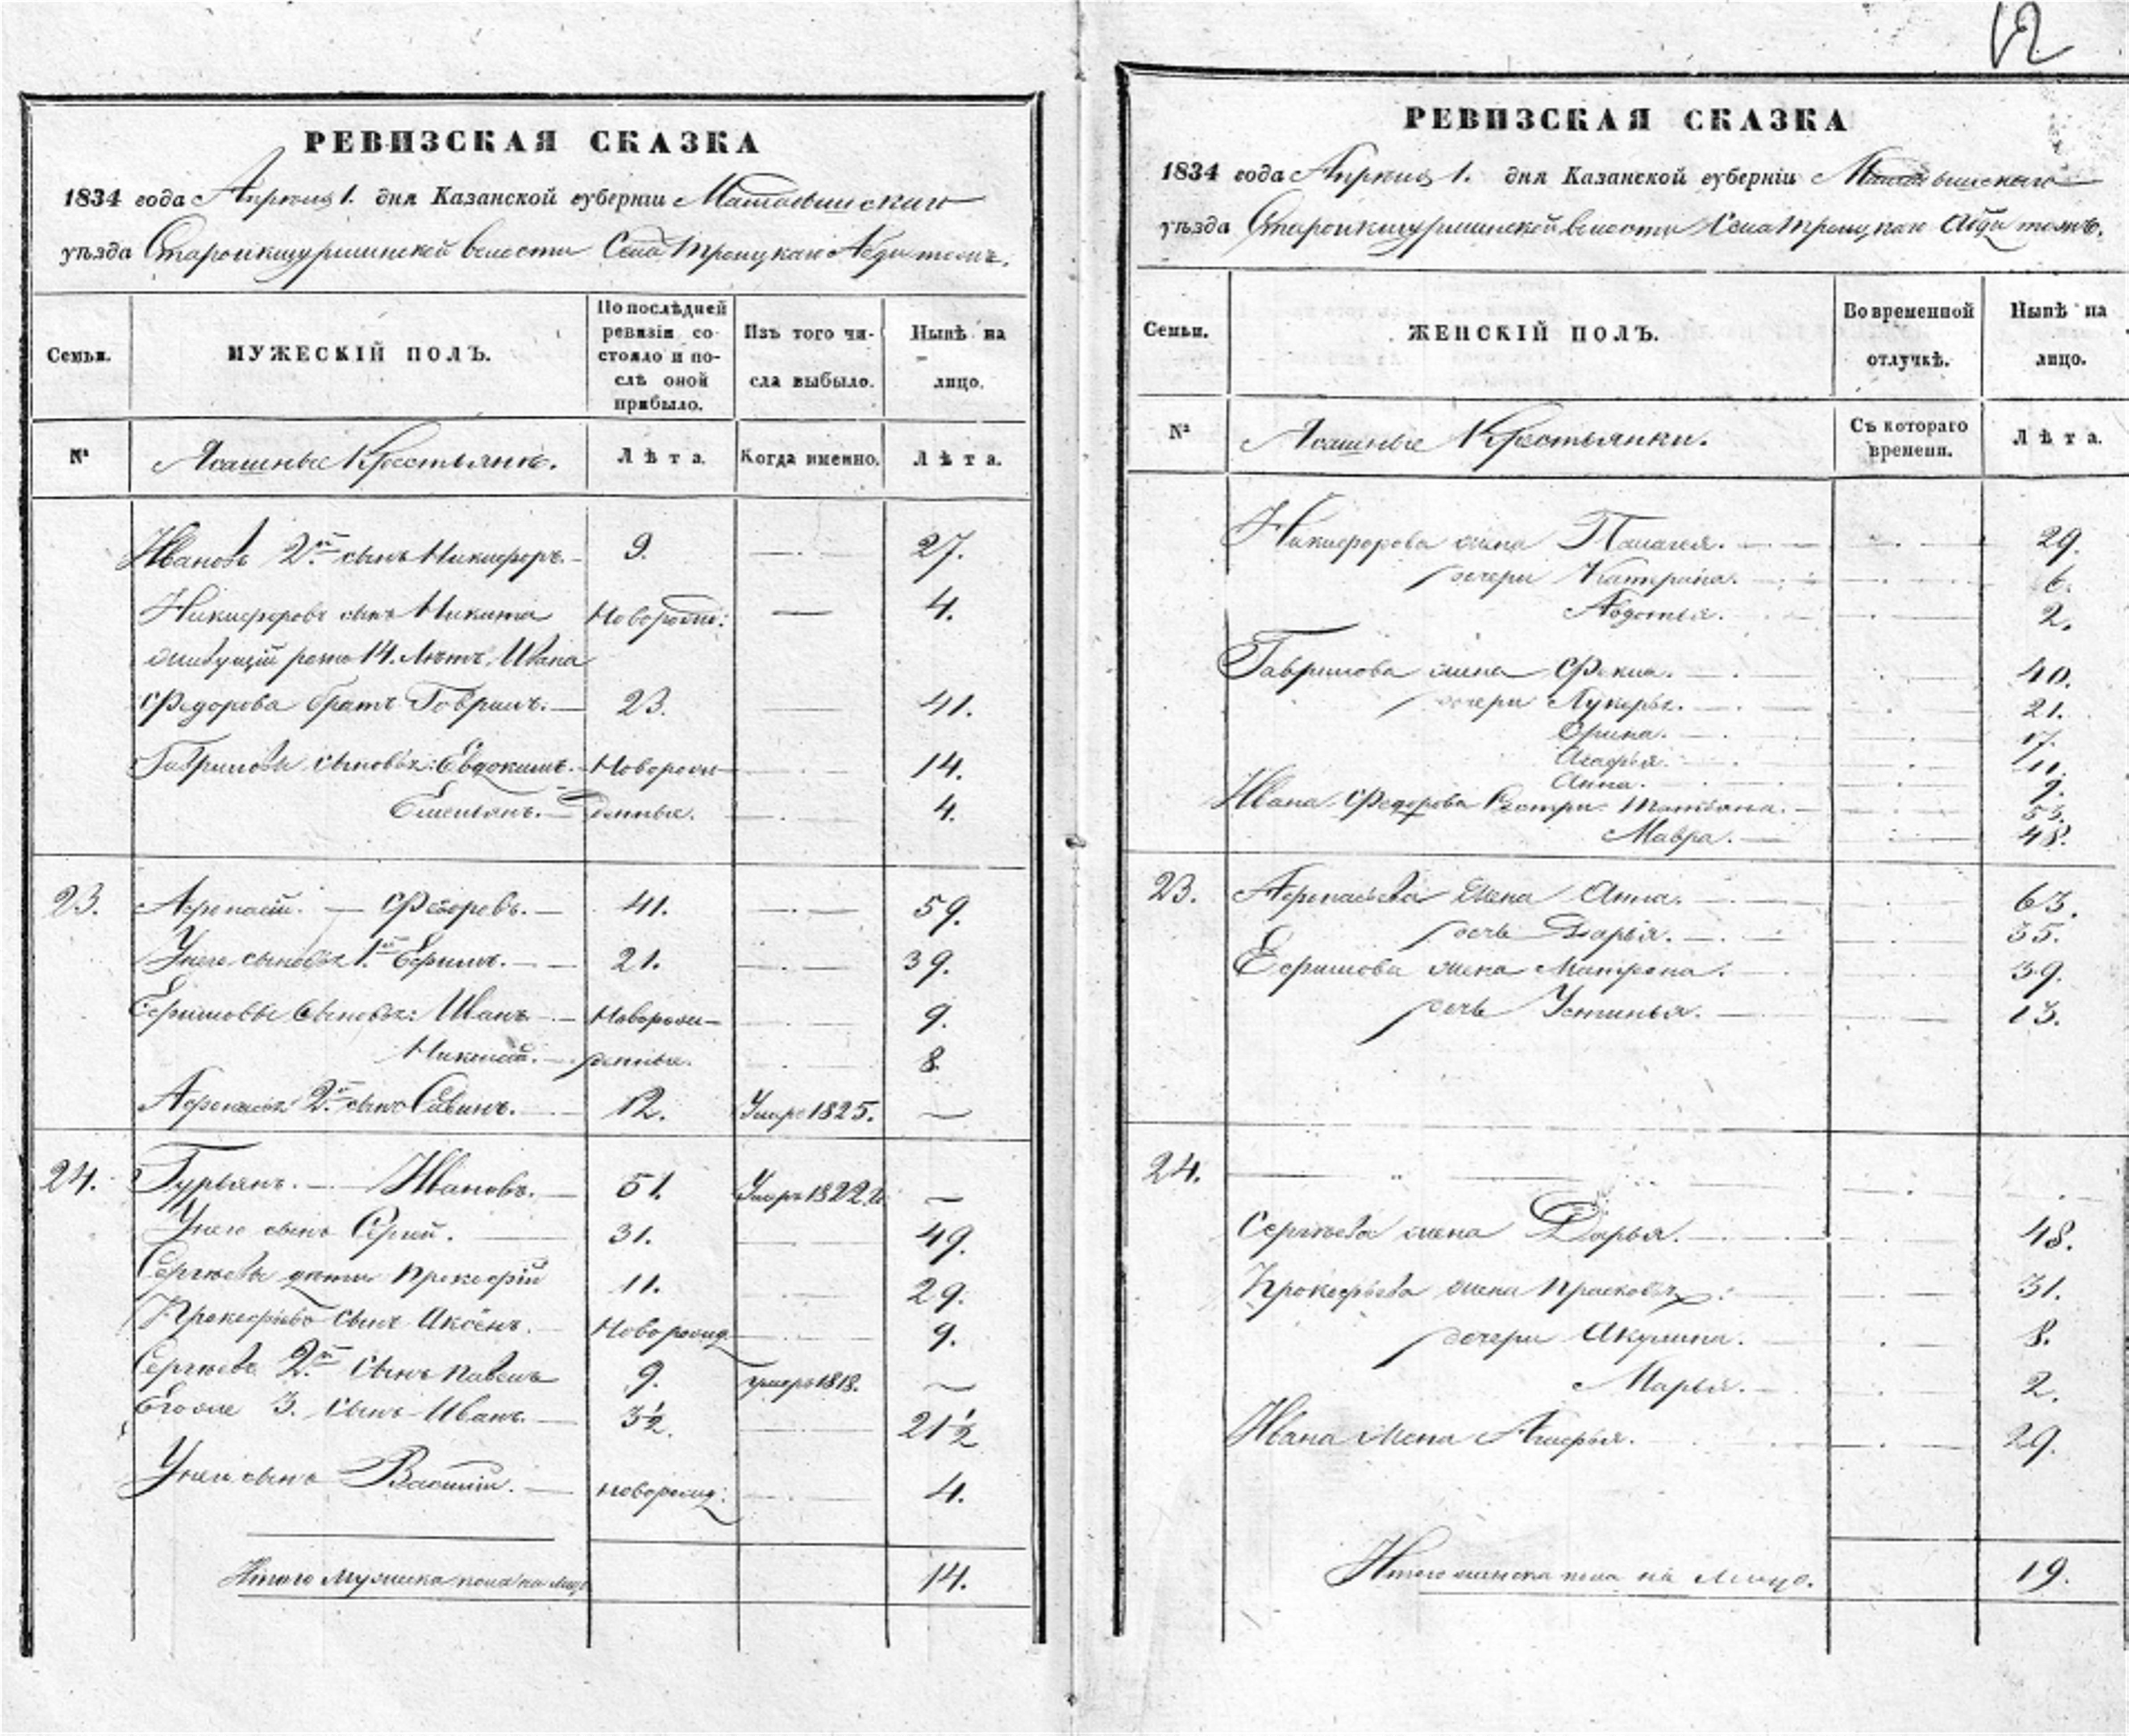 12
РЕВИЗСКАЯ СКАЗКА
1834 года Апреля 1. дня Казанской губерніи
уѣзда волости Села Троицкаго
Семьи.
МУЖЕСКІЙ ПОЛЪ.
По послѣдней
ревизіи со-
стояло и по-
слѣ оной
прибыло.
Изъ того чи-
сла выбыло.
Нынѣ на
лицо.
№
Ясашные Крестьяне.
Лѣта.
Когда именно.
Лѣта.
Ивановъ 2й сынъ Никифоръ. 9. 27.
Никифоровъ сынъ Никита 4.
14. Лѣтъ, Ивана
Федорова братъ Гаврилъ. 23. 41.
Гавриловы сыновья: Евдокимъ. Новорож- 14.
Емельянъ. денные. 4.
23. Афонасій. Федоровъ. 41. 59.
У него сыновья 1й Ефимъ. 21. 39.
Ефимовы сыновья: Иванъ. Новорож- 9.
Николай. денные. 8.
2й сынъ Савинъ. 12. Умре 1825.
24. Гурьянъ. Ивановъ. 51. Умръ 1822
У него сынъ Сергей. 31. 49.
Сергѣевы дѣти Прокофій 11. 29.
Прокофьевъ сынъ Аксёнъ. Новорожд. 9.
Сергѣевъ 2й сынъ Павелъ 9. умеръ 1818.
Егоже 3. сынъ Иванъ. 3½. 21½
У него сынъ Василій. новорожд: 4.
Итого Мужеска пола на лицо 14.
РЕВИЗСКАЯ СКАЗКА
1834 года Апреля 1. дня Казанской губерніи
уѣзда волости Села Троицкаго
Семьи.
ЖЕНСКІЙ ПОЛЪ.
Во временной
отлучкѣ.
Нынѣ на
лицо.
№
Ясашные Крестьянки.
Съ котораго
времени.
Лѣта.
Никифорова жена Палагея. 29.
дочери Катрина. 6.
Авдотья. 2.
Гаврилова жена Фекла. 40.
дочери Лукерья. 21.
Орина. 17.
Агафья. 11.
Анна. 9.
Ивана Федорова сестры Татьяна. 53.
Мавра. 48.
23. Афонасьева жена Анна. 63.
дочь Дарья. 35.
Ефимова жена Матрона. 39.
дочь Устинья. 13.
24.
Сергѣева жена Дарья. 48.
Прокофьева жена Прасковья 31.
дочери Акулина. 8.
Марья. 2.
Ивана жена 29.
Итого женска пола на лицо. 19.